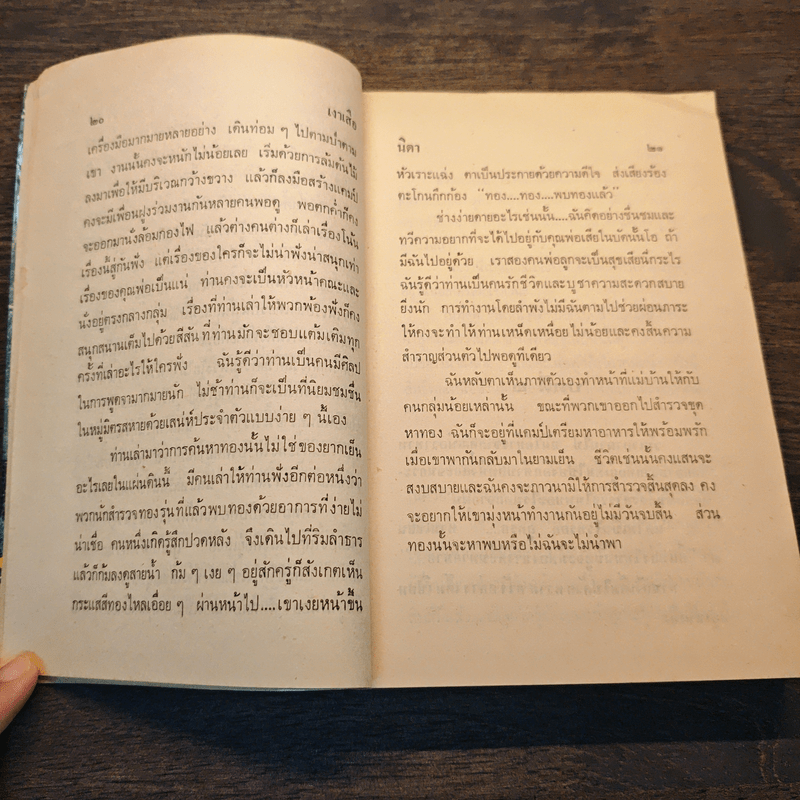 ๒๐ เงาเสือ
เครื่องมือมากมายหลายอย่าง เดินท่อม ๆ ไปตามป่าตาม
เขา งานนั้นคงจะหนักไม่น้อยเลย เริ่มด้วยการล้มต้นไม้
ลงมาเพื่อให้มีบริเวณกว้างขวาง แล้วก็ลงมือสร้างแคมป์
คงจะมีเพื่อนฝูงร่วมงานกันหลายคนพอดู พอตกค่ำก็คง
จะออกมานั่งล้อมกองไฟ แล้วต่างคนต่างก็เล่าเรื่องโน้น
เรื่องนี้สู่กันฟัง แต่เรื่องของใครก็จะไม่น่าฟังน่าสนุกเท่า
เรื่องของคุณพ่อเป็นแน่ ท่านคงจะเป็นหัวหน้าคณะและ
นั่งอยู่ตรงกลางกลุ่ม เรื่องที่ท่านเล่าให้พวกพ้องฟังก็คง
สนุกสนานเต็มไปด้วยสีสัน ที่ท่านมักจะชอบแต้มเติมทุก
ครั้งที่เล่าอะไรให้ใครฟัง ฉันรู้ดีว่าท่านเป็นคนมีศิลป
ในการพูดจามากมายนัก ไม่ช้าท่านก็จะเป็นที่นิยมชมชื่น
ในหมู่มิตรสหายด้วยเสน่ห์ประจำตัวแบบง่าย ๆ นี้เอง
ท่านเล่ามาว่าการค้นหาทองนั้นไม่ใช่ของยากเย็น
อะไรเลยในแผ่นดินนี้ มีคนเล่าให้ท่านฟังอีกต่อหนึ่งว่า
พวกนักสำรวจทองรุ่นที่แล้วพบทองด้วยอาการที่ง่ายไม่
น่าเชื่อ คนหนึ่งเกิดรู้สึกปวดหลัง จึงเดินไปที่ริมลำธาร
แล้วก็ก้มลงดูสายน้ำ ก้ม ๆ เงย ๆ อยู่สักครู่ก็สังเกตเห็น
กระแสสีทองไหลเอื่อย ๆ ผ่านหน้าไป....เขาเงยหน้าขึ้น
นิดา ๒๑
หัวเราะแฉ่ง ตาเป็นประกายด้วยความดีใจ ส่งเสียงร้อง
ตะโกนกึกก้อง “ทอง....ทอง....พบทองแล้ว”
ช่างง่ายดายอะไรเช่นนั้น....ฉันคิดอย่างชื่นชมและ
ทวีความอยากที่จะได้ไปอยู่กับคุณพ่อเสียในบัดนั้นโอ ถ้า
มีฉันไปอยู่ด้วย เราสองคนพ่อลูกจะเป็นสุขเสียนี่กระไร
ฉันรู้ดีว่าท่านเป็นคนรักชีวิตและบูชาความสะดวกสบาย
ยิ่งนัก การทำงานโดยลำพังไม่มีฉันตามไปช่วยผ่อนภาระ
ให้คงจะทำให้ท่านเหน็ดเหนื่อยไม่น้อยและคงสิ้นความ
สำราญส่วนตัวไปพอดูทีเดียว
ฉันหลับตาเห็นภาพตัวเองทำหน้าที่แม่บ้านให้กับ
คนกลุ่มน้อยเหล่านั้น ขณะที่พวกเขาออกไปสำรวจขุด
หาทอง ฉันก็จะอยู่ที่แคมป์เตรียมหาอาหารให้พร้อมพรัก
เมื่อเขาพากันกลับมาในยามเย็น ชีวิตเช่นนั้นคงแสนจะ
สงบสบายและฉันคงจะภาวนามิให้การสำรวจสิ้นสุดลง คง
จะอยากให้เขามุ่งหน้าทำงานกันอยู่ไม่มีวันจบสิ้น ส่วน
ทองนั้นจะหาพบหรือไม่ฉันจะไม่นำพา